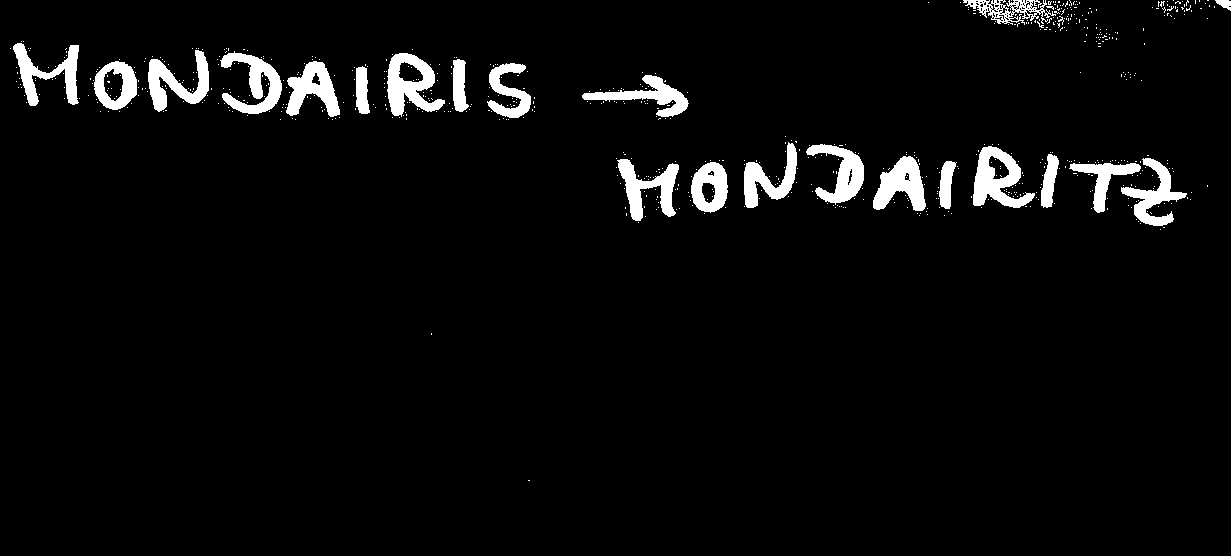 MONDAIRIS →
MONDAIRITZ